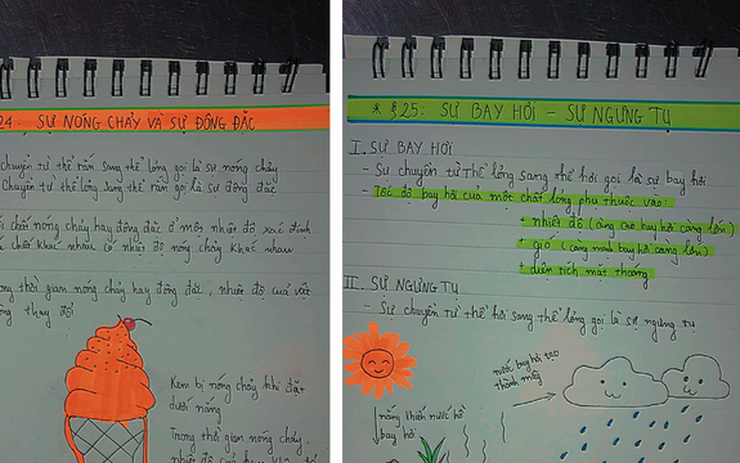 24: SỰ NÓNG CHẢY VÀ SỰ ĐÔNG ĐẶC
chuyển từ thể rắn sang thể lỏng gọi là sự nóng chảy
Chuyển từ thể lỏng sang thể rắn gọi là sự đông đặc
chất nóng chảy hay đông đặc ở một nhiệt độ xác định
chất khác nhau có nhiệt độ nóng chảy khác nhau
thời gian nóng chảy hay đông đặc, nhiệt độ của vật
thay đổi
Kem bị nóng chảy khi đặt
dưới nắng
Trong thời gian nóng chảy,
nhiệt độ của kem
* § 25: SỰ BAY HƠI – SỰ NGƯNG TỤ
I. SỰ BAY HƠI
- Sự chuyển từ thể lỏng sang thể hơi gọi là sự bay hơi
- Tốc độ bay hơi của một chất lỏng phụ thuộc vào:
+ nhiệt độ (càng cao bay hơi càng lớn)
+ gió (càng mạnh bay hơi càng lớn)
+ diện tích mặt thoáng
II. SỰ NGƯNG TỤ
- Sự chuyển từ thể hơi sang thể lỏng gọi là sự ngưng tụ
nước bay hơi tạo
thành mây
nắng khiến nước hồ
bay hơi